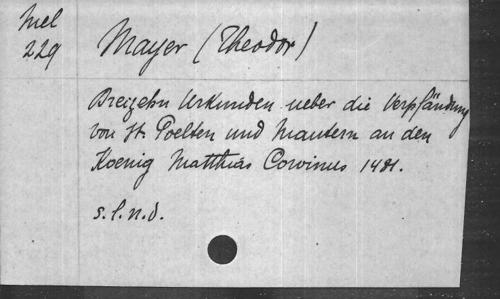 Mel
229
Mayer (Theodor)
Dreizehn Urkunden ueber die Verpfändung
von St. Poelten und Mautern an den
Koenig Matthias Corvinus 1481.
s.l.n.d.